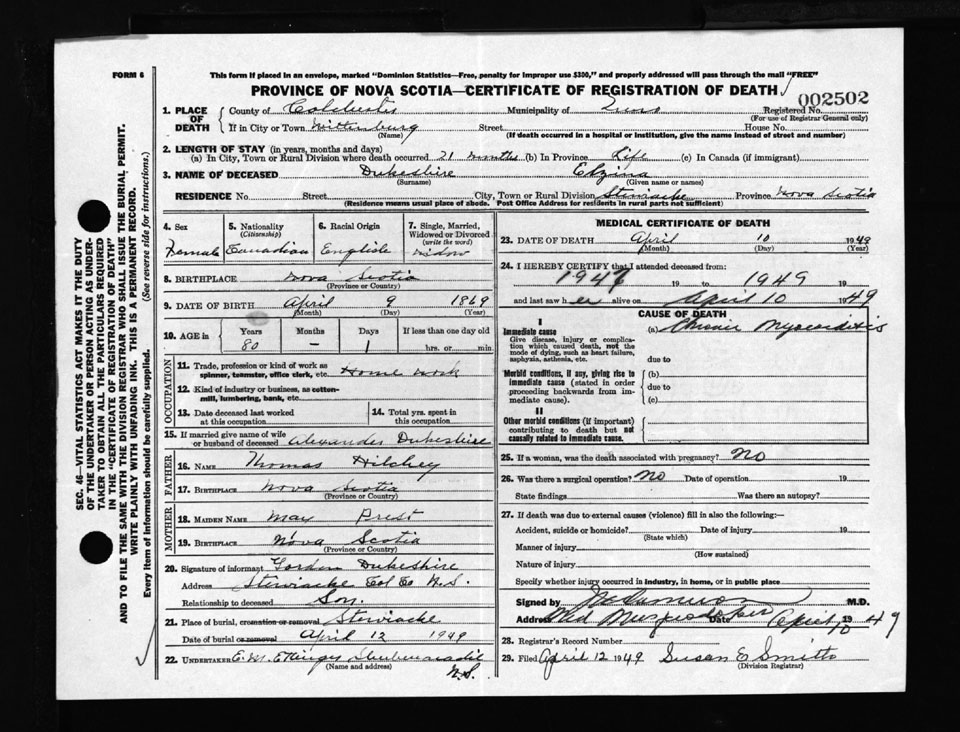 FORM 6
This form if placed in an envelope, marked "Dominion Statistics—Free, penalty for improper use $300," and properly addressed will pass through the mail "FREE"
PROVINCE OF NOVA SCOTIA—CERTIFICATE OF REGISTRATION OF DEATH
002502
1. PLACE OF DEATH
County of Colchester Municipality of Truro Registered No.
(For use of Registrar General only)
If in City or Town Wittenburg Street House No.
(Name) (If death occurred in a hospital or institution, give the name instead of street and number)
2. LENGTH OF STAY (in years, months and days)
(a) In City, Town or Rural Division where death occurred 21 months (b) In Province Life (c) In Canada (if immigrant)
3. NAME OF DECEASED Dukeshire
(Surname) (Given name or names)
RESIDENCE No. Street City, Town or Rural Division Stewiacke Province Nova Scotia
(Residence means usual place of abode. Post Office Address for residents in rural parts not sufficient)
4. Sex Female
5. Nationality (Citizenship) Canadian
6. Racial Origin English
7. Single, Married, Widowed or Divorced (write the word) Widow
8. BIRTHPLACE Nova Scotia
(Province or Country)
9. DATE OF BIRTH April 9 1869
(Month) (Day) (Year)
10. AGE in Years Months Days If less than one day old
80 — 1 hrs. or min.
OCCUPATION
11. Trade, profession or kind of work as spinner, teamster, office clerk, etc. Home work
12. Kind of industry or business, as cotton-mill, lumbering, bank, etc.
13. Date deceased last worked at this occupation
14. Total yrs. spent in this occupation
15. If married give name of wife or husband of deceased Alexander Dukeshire
FATHER
16. NAME Thomas Hilchey
17. BIRTHPLACE Nova Scotia
(Province or Country)
MOTHER
18. MAIDEN NAME May Prest
19. BIRTHPLACE Nova Scotia
(Province or Country)
20. Signature of informant Gordon Dukeshire
Address Stewiacke Col Co N.S.
Relationship to deceased Son.
21. Place of burial, cremation or removal Stewiacke
Date of burial or removal April 12 1949
22. UNDERTAKER Shubenacadie
(Name and address) N.S.
MEDICAL CERTIFICATE OF DEATH
23. DATE OF DEATH April 10 1949
(Month) (Day) (Year)
24. I HEREBY CERTIFY that I attended deceased from:
19 to 1949 19
and last saw her alive on April 10 1949
CAUSE OF DEATH
I
Immediate cause
Give disease, injury or complication which caused death, not the mode of dying, such as heart failure, asphyxia, asthenia, etc.
(a) Chronic Myocarditis
due to
Morbid conditions, if any, giving rise to immediate cause (stated in order proceeding backwards from immediate cause).
(b)
due to
(c)
II
Other morbid conditions (if important) contributing to death but not causally related to immediate cause.
25. If a woman, was the death associated with pregnancy? No
26. Was there a surgical operation? No Date of operation 19
State findings Was there an autopsy?
27. If death was due to external causes (violence) fill in also the following:—
Accident, suicide or homicide? Date of injury 19
(State which)
Manner of injury
(How sustained)
Nature of injury
Specify whether injury occurred in industry, in home, or in public place
Signed by M.D.
Address Mid Musquodoboit Date April 10 1949
28. Registrar's Record Number
29. Filed April 12 1949 Susan E Smith
(Division Registrar)
SEC. 46—VITAL STATISTICS ACT MAKES IT THE DUTY
OF THE UNDERTAKER OR PERSON ACTING AS UNDER-
TAKER TO OBTAIN ALL THE PARTICULARS REQUIRED
IN THE "CERTIFICATE OF REGISTRATION OF DEATH"
AND TO FILE THE SAME WITH THE DIVISION REGISTRAR WHO SHALL ISSUE THE BURIAL PERMIT.
WRITE PLAINLY WITH UNFADING INK. THIS IS A PERMANENT RECORD.
Every item of information should be carefully supplied. (See reverse side for instructions.)